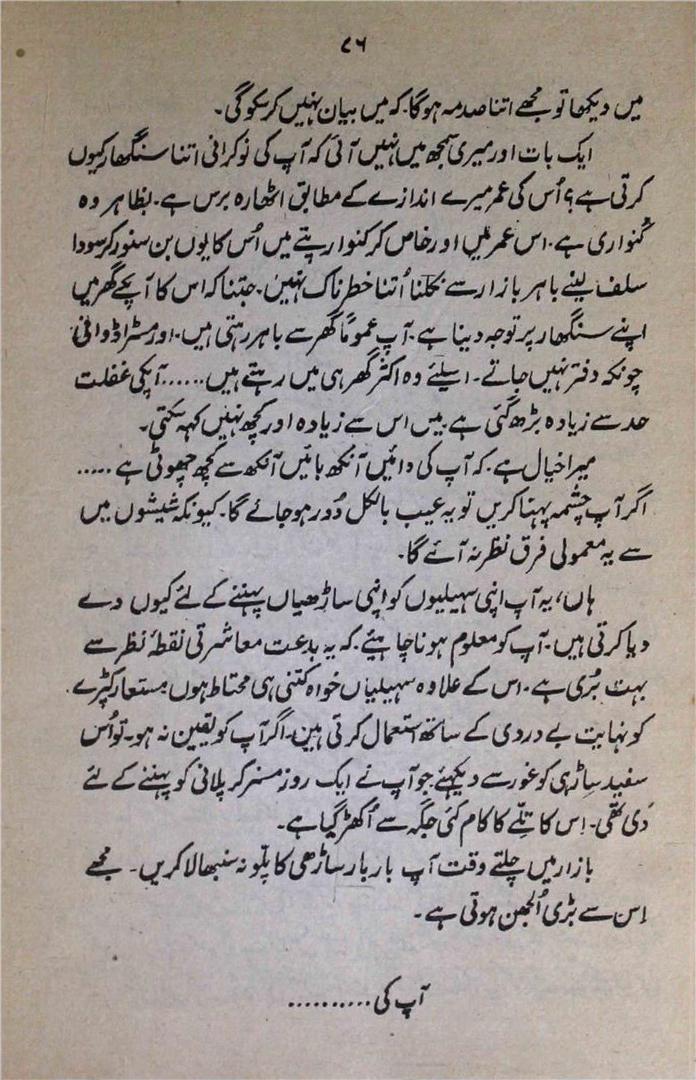 ۸۶
میں دیکھا تو مجھے اتنا صدمہ ہوگا۔ کہ میں بیان نہیں کرسکو گی۔
ایک بات اور میری سمجھ میں نہیں آئی کہ آپ کی نوکرانی اتنا سنگھار کیوں
کرتی ہے؟ اُس کی عمر میرے اندازے کے مطابق اٹھارہ برس ہے۔ بظاہر وہ
کنواری ہے۔ اس عمر میں اور خاص کر کنوارپتے میں اُس کا یوں بن سنور کر سودا
سلف لینے باہر بازار سے نکلنا اُتنا خطرناک نہیں۔ جتنا کہ اس کا آپکے گھر میں
اپنے سنگھار پر توجہ دینا ہے۔ آپ عموماً گھر سے باہر رہتی ہیں۔ اور مسٹر اڈوانی
چونکہ دفتر نہیں جاتے۔ اسلئے وہ اکثر گھر ہی میں رہتے ہیں...... آپکی غفلت
حد سے زیادہ بڑھ گئی ہے۔ میں اس سے زیادہ اور کچھ نہیں کہہ سکتی۔
میرا خیال ہے۔ کہ آپ کی دائیں آنکھ بائیں آنکھ سے کچھ چھوٹی ہے.....
اگر آپ چشمہ پہنا کریں تو یہ عیب بالکل دُور ہو جائے گا۔ کیونکہ شیشوں میں
سے یہ معمولی فرق نظر نہ آئے گا۔
ہاں، یہ آپ اپنی سہیلیوں کو اپنی ساڑھیاں پہننے کے لئے کیوں دے
دیا کرتی ہیں۔ آپ کو معلوم ہونا چاہیئے۔ کہ یہ بدعت معاشرتی نقطۂ نظر سے
بہت بُری ہے۔ اس کے علاوہ سہیلیاں خواہ کتنی ہی محتاط ہوں مستعار کپڑے
کو نہایت بے دردی کے ساتھ استعمال کرتی ہیں۔ اگر آپ کو یقین نہ ہو۔ تو اُس
سفید ساڑہی کو غور سے دیکھئے جو آپ نے ایک روز مسز کرپلانی کو پہننے کے لئے
دی تھی۔ اِس کا تِلّے کا کام کئی جگہ سے اُکھڑ گیا ہے۔
بازار میں چلتے وقت آپ بار بار ساڑھی کا پلّو نہ سنبھالا کریں۔ مجھے
اِس سے بڑی اُلجھن ہوتی ہے۔
آپ کی..........